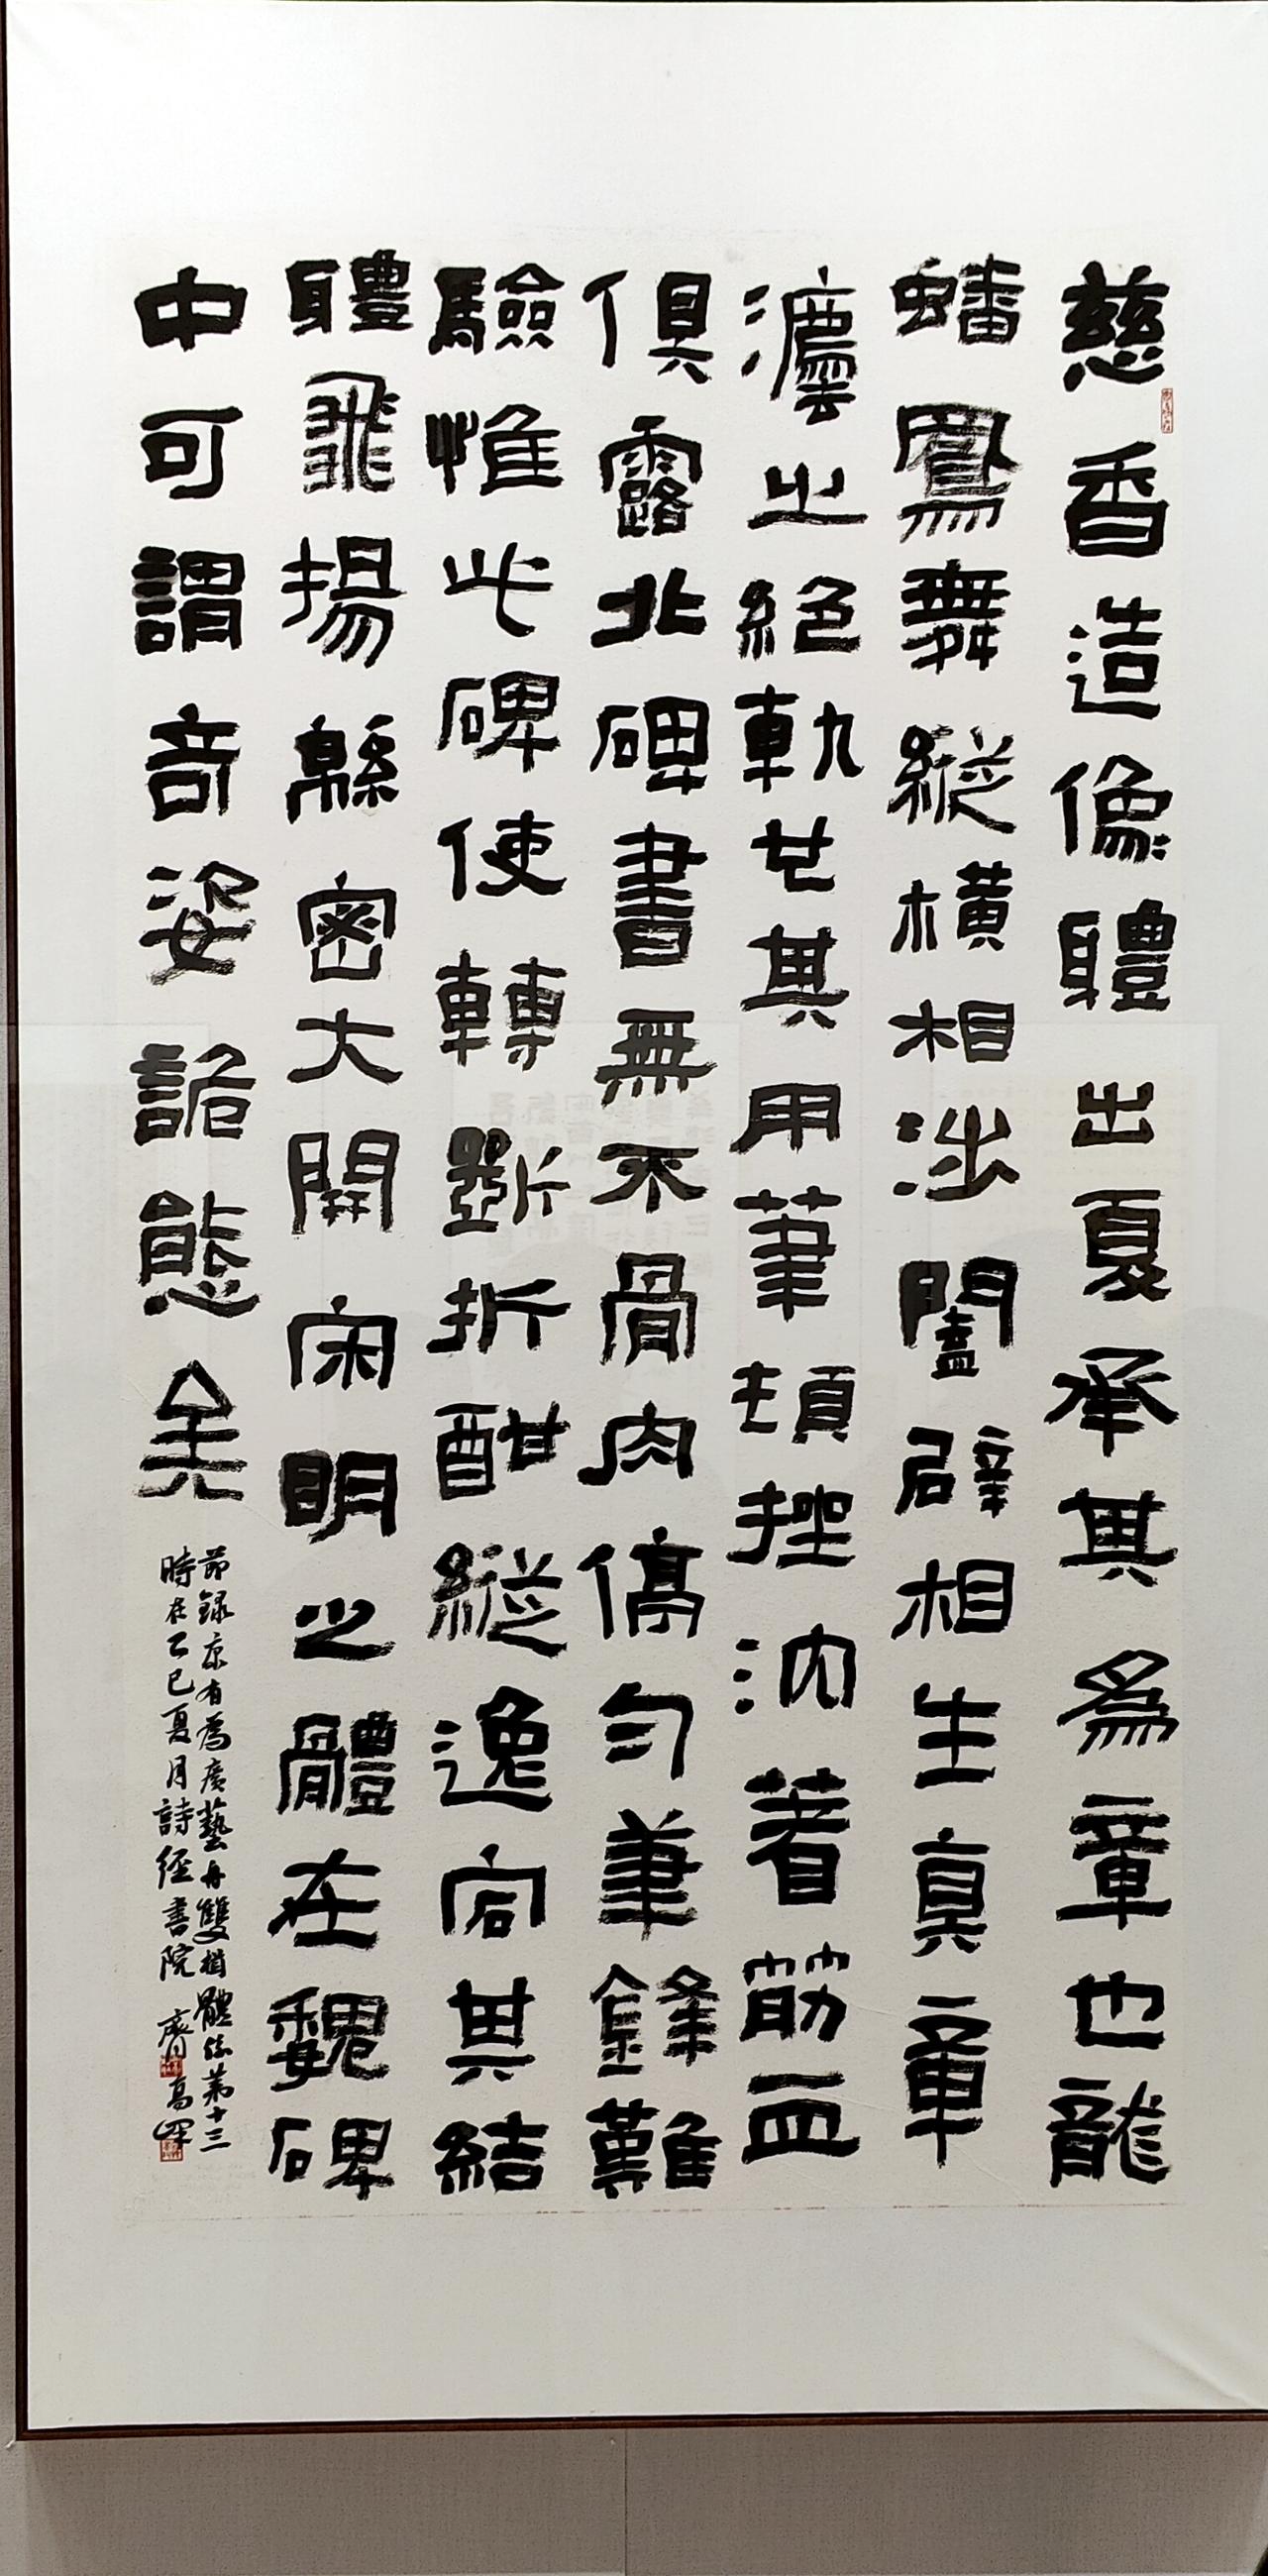 慈香造像體出夏承其為章也龍
蟠鳳舞縱橫相涉闔辟相生真章
法之絕軌也其用筆頓挫沈著筋血
俱露北碑書無不骨肉停勻筆鋒難
驗惟此碑使轉斷折酣縱逸宕其結
體飛揚緜密大開宋明之體在魏碑
中可謂奇姿詭態矣
節錄康有為廣藝舟雙楫體系第十三
時在乙巳夏月詩經書院齊高